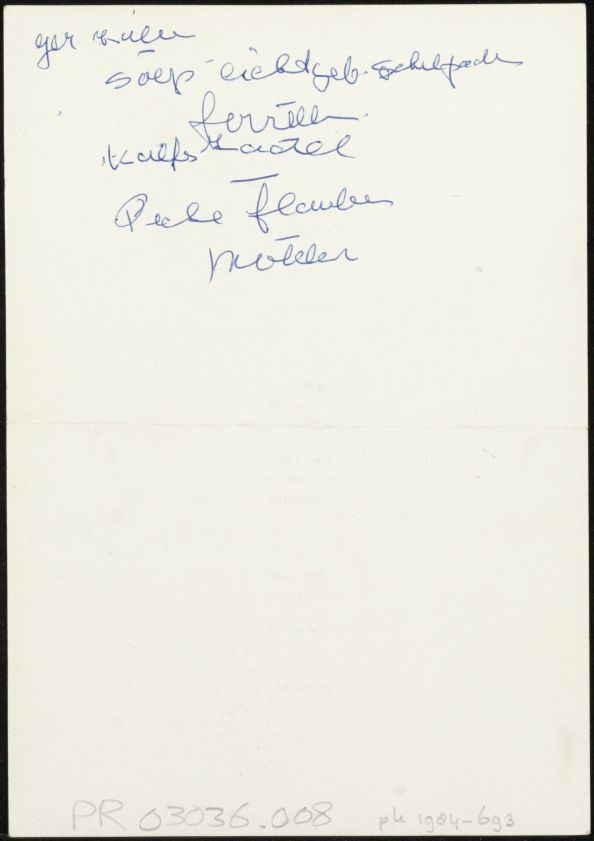 ger zalm
soep licht geb. schilpad
forellen
kalfszadel
Peche flambee
mokka
PR 03036.008 pk 1984-693